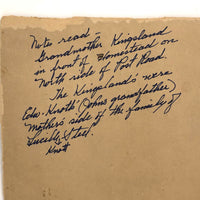 Notes read -
Grandmother Kingsland
in front of Homestead on
North side of Post Road.
The Kingslands were
Edw. Knott's (Johns grandfather)
Mothers' side of the family of
Lucille & Stel.
Knott